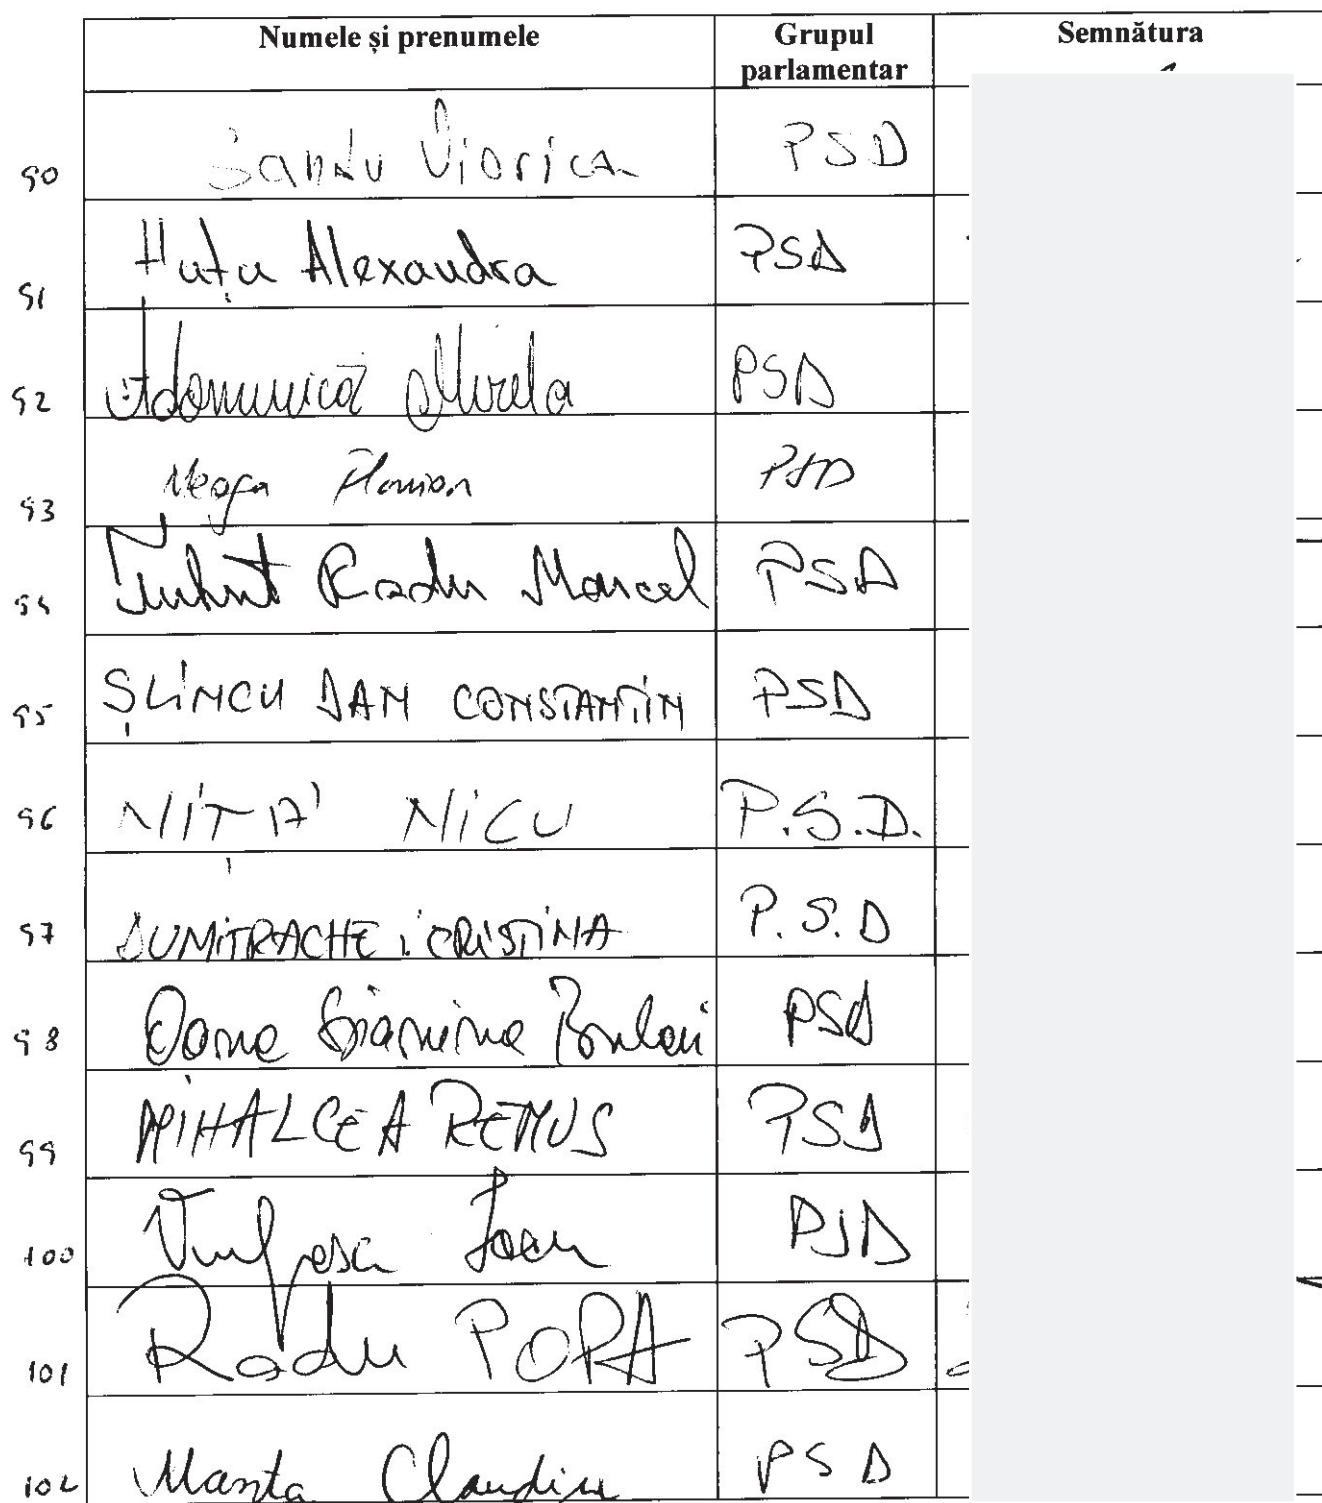 Numele și prenumele Grupul parlamentar Semnătura
90 Sandu Viorica PSD
91 Huțu Alexandra PSD
92 Adomnică Mirela PSD
93 Neaga Florian PSD
94 Radu Marcel PSD
95 ȘLINCU DAN CONSTANTIN PSD
96 NIȚĂ NICU P.S.D.
97 DUMITRACHE CRISTINA P.S.D
98 Oana Gianina Bulai PSD
99 MIHALCEA REMUS PSD
100 Vulpescu Ioan PSD
101 Radu POPA PSD
102 Manta Claudiu PSD